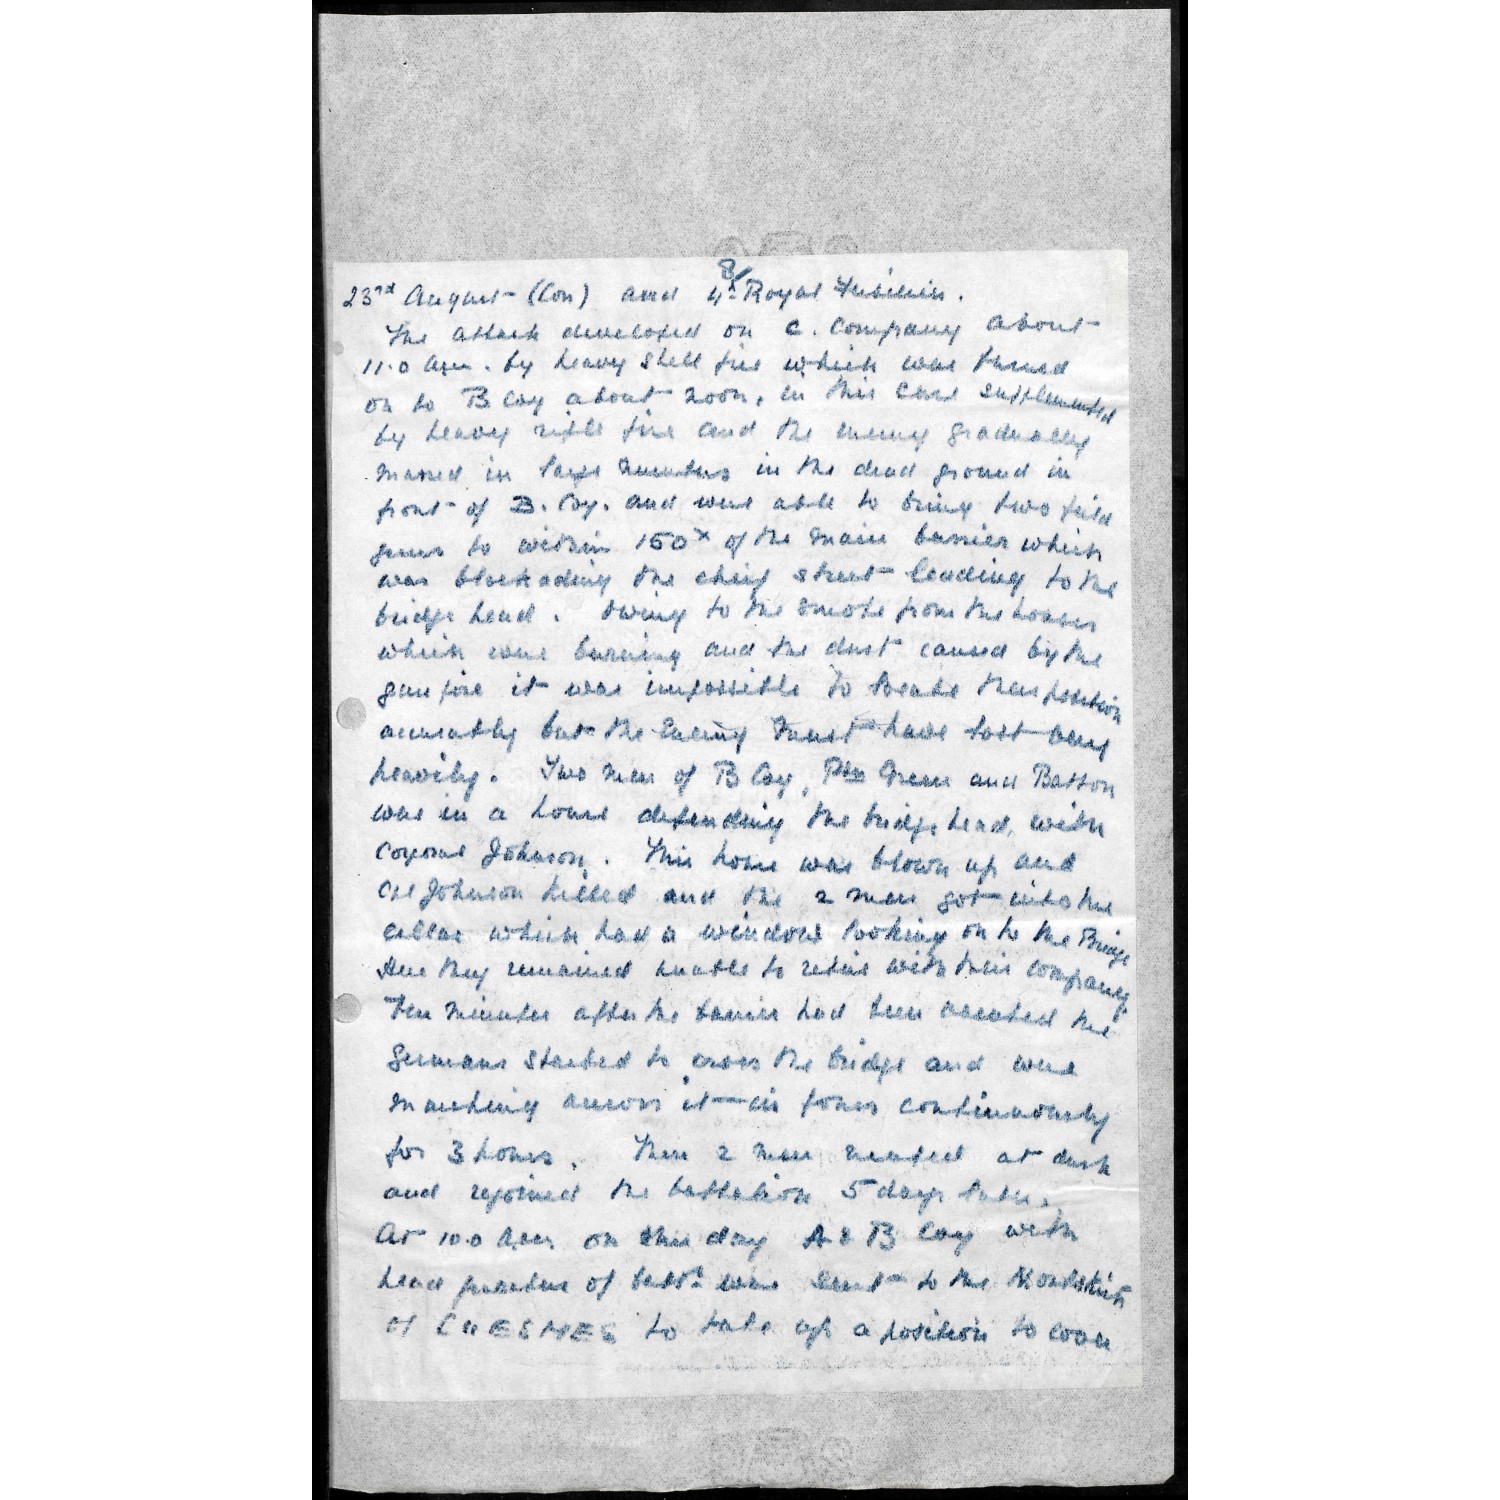 8/
23rd August (Con) and 4th Royal Fusiliers.
The attack developed on C. Company about
11.0 a.m. by heavy shell fire which was turned
on to B Coy about noon, in this case supplemented
by heavy rifle fire and the enemy gradually
massed in large numbers in the dead ground in
front of B. Coy. and were able to bring two field
guns to within 150x of the main barrier which
was blockading the chief street leading to the
bridge head. Owing to the smoke from the houses
which were burning and the dust caused by the
gun fire it was impossible to locate their position
accurately but the Enemy must have lost very
heavily. Two men of B Coy, Ptes Green and Batson
was in a house defending the bridge head, with
Corporal Johnson. This house was blown up and
Cpl Johnson killed and the 2 men got into the
cellar which had a window looking on to the Bridge
Here they remained unable to retire with their company
Ten minutes after the barrier had been vacated the
Germans started to cross the bridge and were
marching across it in fours continuously
for 3 hours. These 2 men at dusk
and rejoined the battalion 5 days later.
At 10.0 a.m. on this day A & B Coy with
head quarters of battn. were sent to the N outskirts
of CUESMES to take up a position to cover